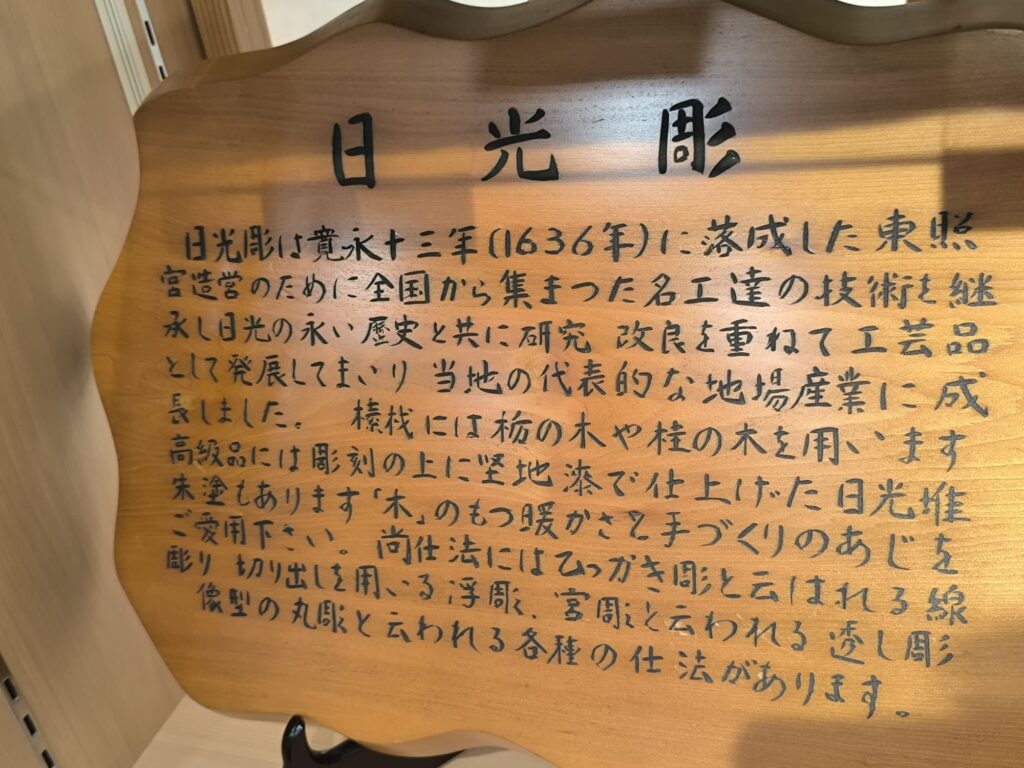 日光彫
日光彫は寛永十三年(1636年)に落成した東照
宮造営のために全国から集まつた名工達の技術を継
承し日光の永い歴史と共に研究 改良を重ねて工芸品
として発展してまいり 当地の代表的な地場産業に成
長しました。 榛栈には栃の木や桂の木を用います
高級品には彫刻の上に堅地漆で仕上げた日光堆
朱塗もあります「木」のもつ暖かさと手づくりのあじを
ご愛用下さい。 尚仕法にはひつかき彫と云はれる線
彫り 切り出しを用いる浮彫、宮彫と云われる透し彫
像型の丸彫と云われる各種の仕法があります。